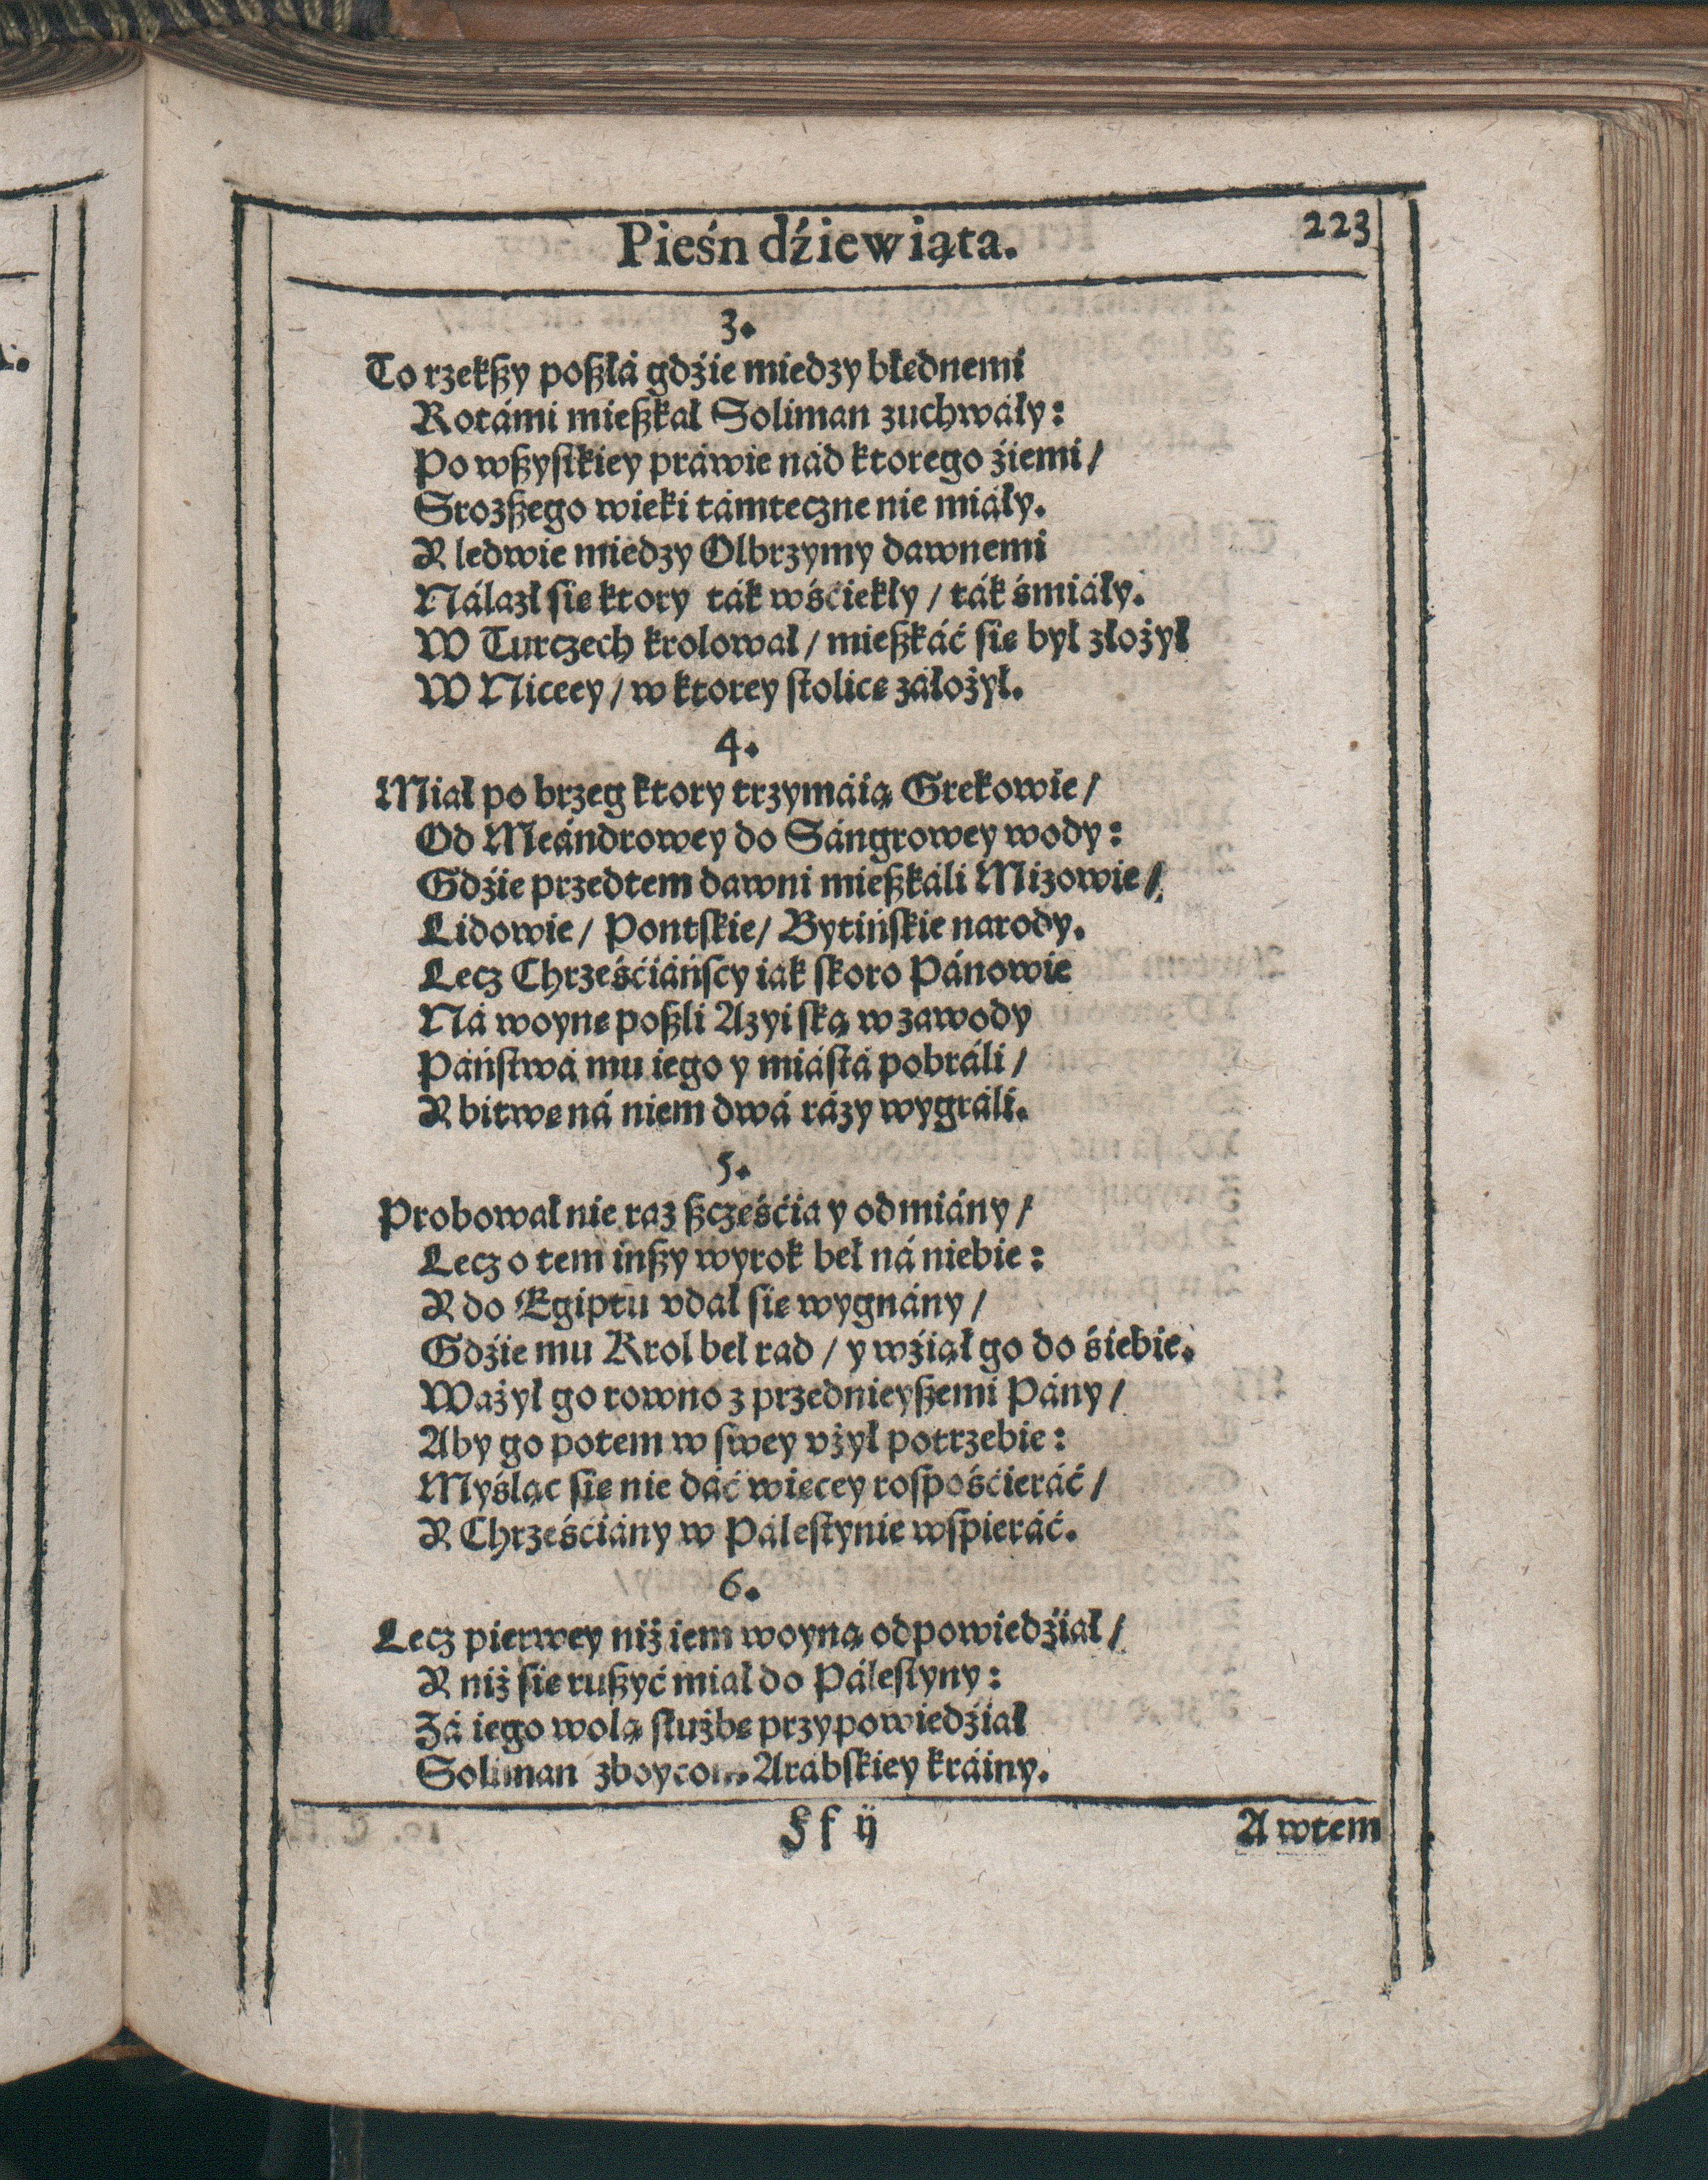 Pieśn dźiewiąta.
223
3.
To rzekßy poßłá gdźie miedzy błędnemi
Rotámi mießkał Soliman zuchwáły:
Po wßyſtkiey práwie nád ktorego źiemi /
Srozßego wieki támteczne nie miáły.
A ledwie miedzy Olbrzymy dawnemi
Nálazł ſię ktory ták wśćiekły / ták śmiáły.
W Turczech krolował / mießkáć ſię był złożył
W Niceey / w ktorey ſtolicę záłożył.
4.
Miał po brzeg ktory trzymáią Grekowie /
Od Meándrowey do Sángrowey wody:
Gdźie przedtem dawni mießkáli Mizowie /
Lidowie / Pontſkie / Bytińſkie narody.
Lecz Chrześćiáńſcy iak ſkoro Pánowie
Ná woynę poßli Azyiſką w zawody
Páńſtwá mu iego y miáſtá pobráli /
A bitwę ná niem dwá rázy wygráli.
5.
Probował nie raz ßczęśćia y odmiány /
Lecz o tem inßy wyrok beł ná niebie:
A do Egiptu vdał ſię wygnány /
Gdźie mu Krol beł rad / y wźiął go do śiebie.
Ważył go rowno z przednieyßemi Pány /
Aby go potem w ſwey vżył potrzebie:
Myśląc ſię nie dáć więcey roſpośćieráć /
A Chrześćiány w Páleſtynie wſpieráć.
6.
Lecz pierwey niż iem woyną odpowiedźiał /
A niż ſię rußyć miał do Páleſtyny:
Zá iego wolą służbę przypowiedźiał
Soliman zboycom Arábſkiey kráiny.
Ff ij
A wtem